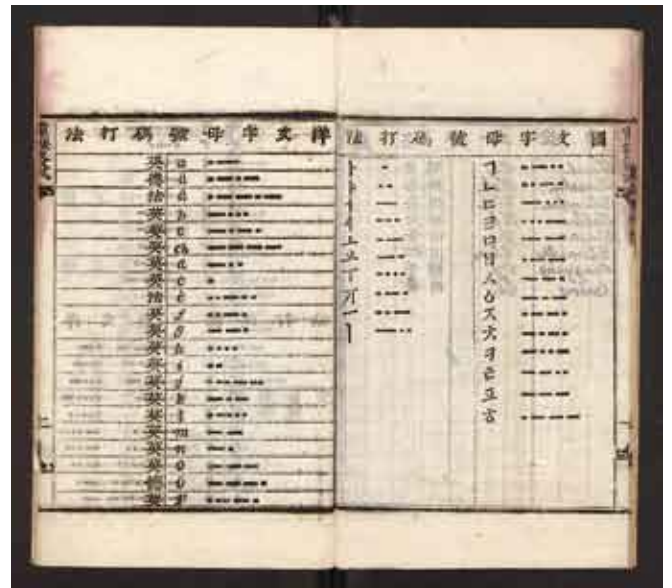 國文字母號碼打法
ㄱ
ㄴ
ㄷ
ㄹ
ㅁ
ㅂ
ㅅ
ㅇ
ㅈ
ㅊ
ㅋ
ㅌ
ㅍ
ㅎ
ㅏ
ㅑ
ㅓ
ㅕ
ㅗ
ㅛ
ㅜ
ㅠ
ㅡ
ㅣ
洋文字母號碼打法
英 a
德 ä
法 á
英 b
英 c
英 ch
英 d
英 e
法 é
英 f
英 g
英 h
英 i
英 j
英 k
英 l
英 m
英 n
英 o
德 ö
英 p